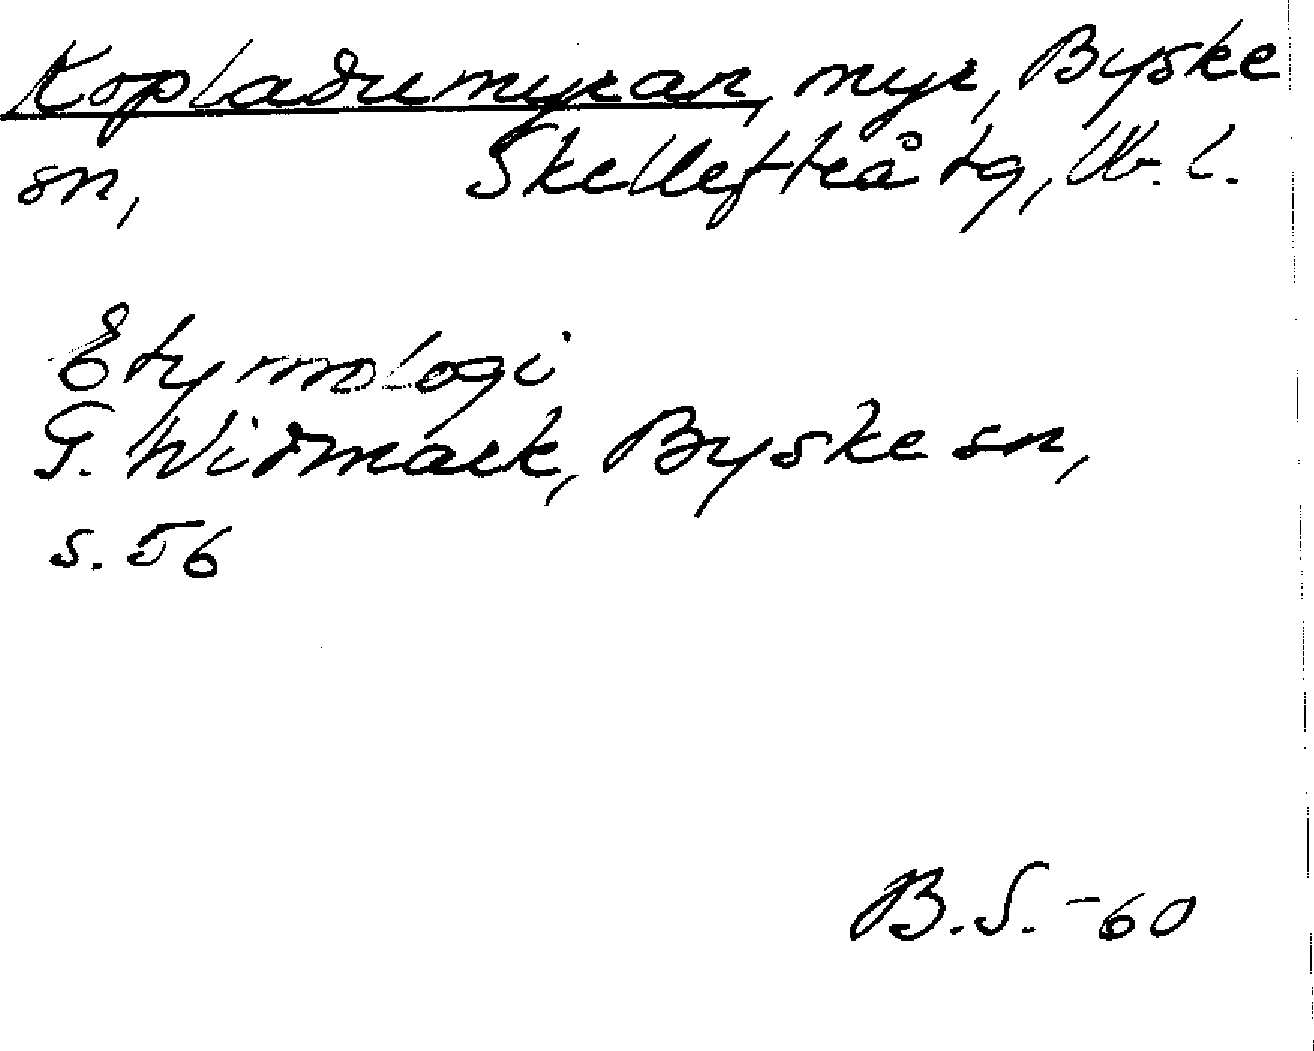 Kopladumyran, myr, Byske
sn, Skellefteå tg, Vb. l.
Etymologi
G. Widmark, Byske sn,
s. 56
B.S. -60